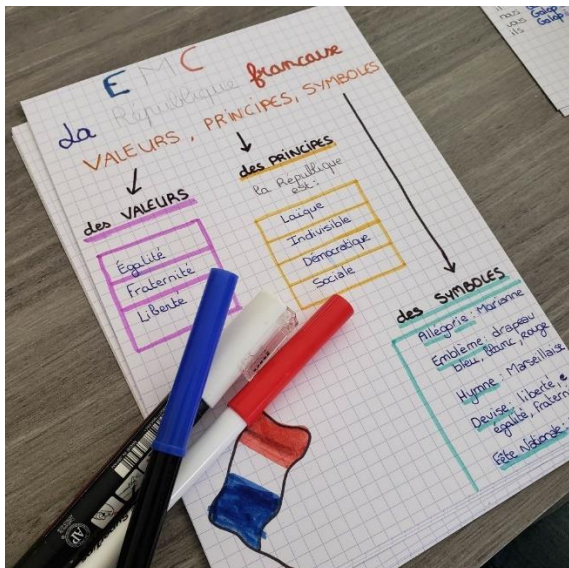 EMC
La République francaise
VALEURS, PRINCIPES, SYMBOLES
des VALEURS
Égalité
Fraternité
Liberté
des PRINCIPES
la République
est :
Laïque
Indivisible
Démocratique
Sociale
des SYMBOLES
Allégorie : Marianne
Emblème : drapeau
bleu, blanc, rouge
Hymne : Marseillaise
Devise : liberté,
égalité, fraterni
Fête Nationale :
il
nous
vous Galop
ils Galop
AP